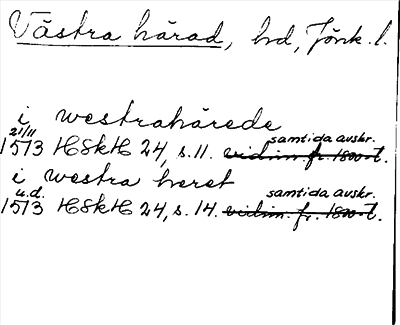 Västra härad, hd, Jönk. l.
i westrahärede
21/11 samtida avskr.
1513 HSkH 24, s. 11. vidim. fr. 1800-t.
i westra heret
u.d. samtida avskr.
1513 HSkH 24, s. 14. vidim. fr. 1800-t.